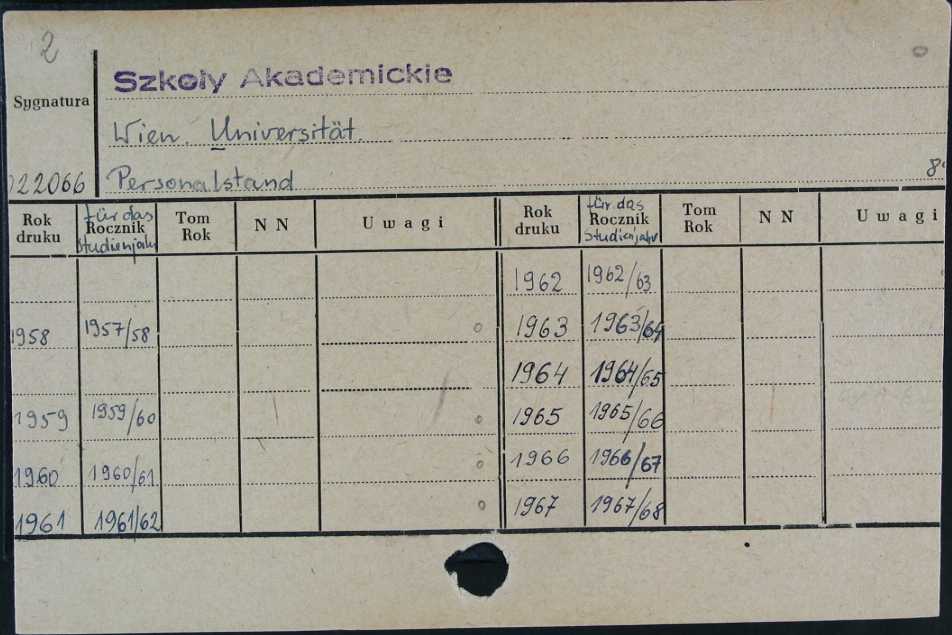 2
Szkoły Akademickie
Sygnatura
Wien. Universität.
022066 Personalstand 8°
Rok druku für das Rocznik Studienjahr Tom Rok NN Uwagi Rok druku für das Rocznik Studienjahr Tom Rok NN Uwagi
1962 1962/63
1958 1957/58 1963 1963/64
1964 1964/65
1959 1959/60 1965 1965/66
1960 1960/61 1966 1966/67
1961 1961/62 1967 1967/68